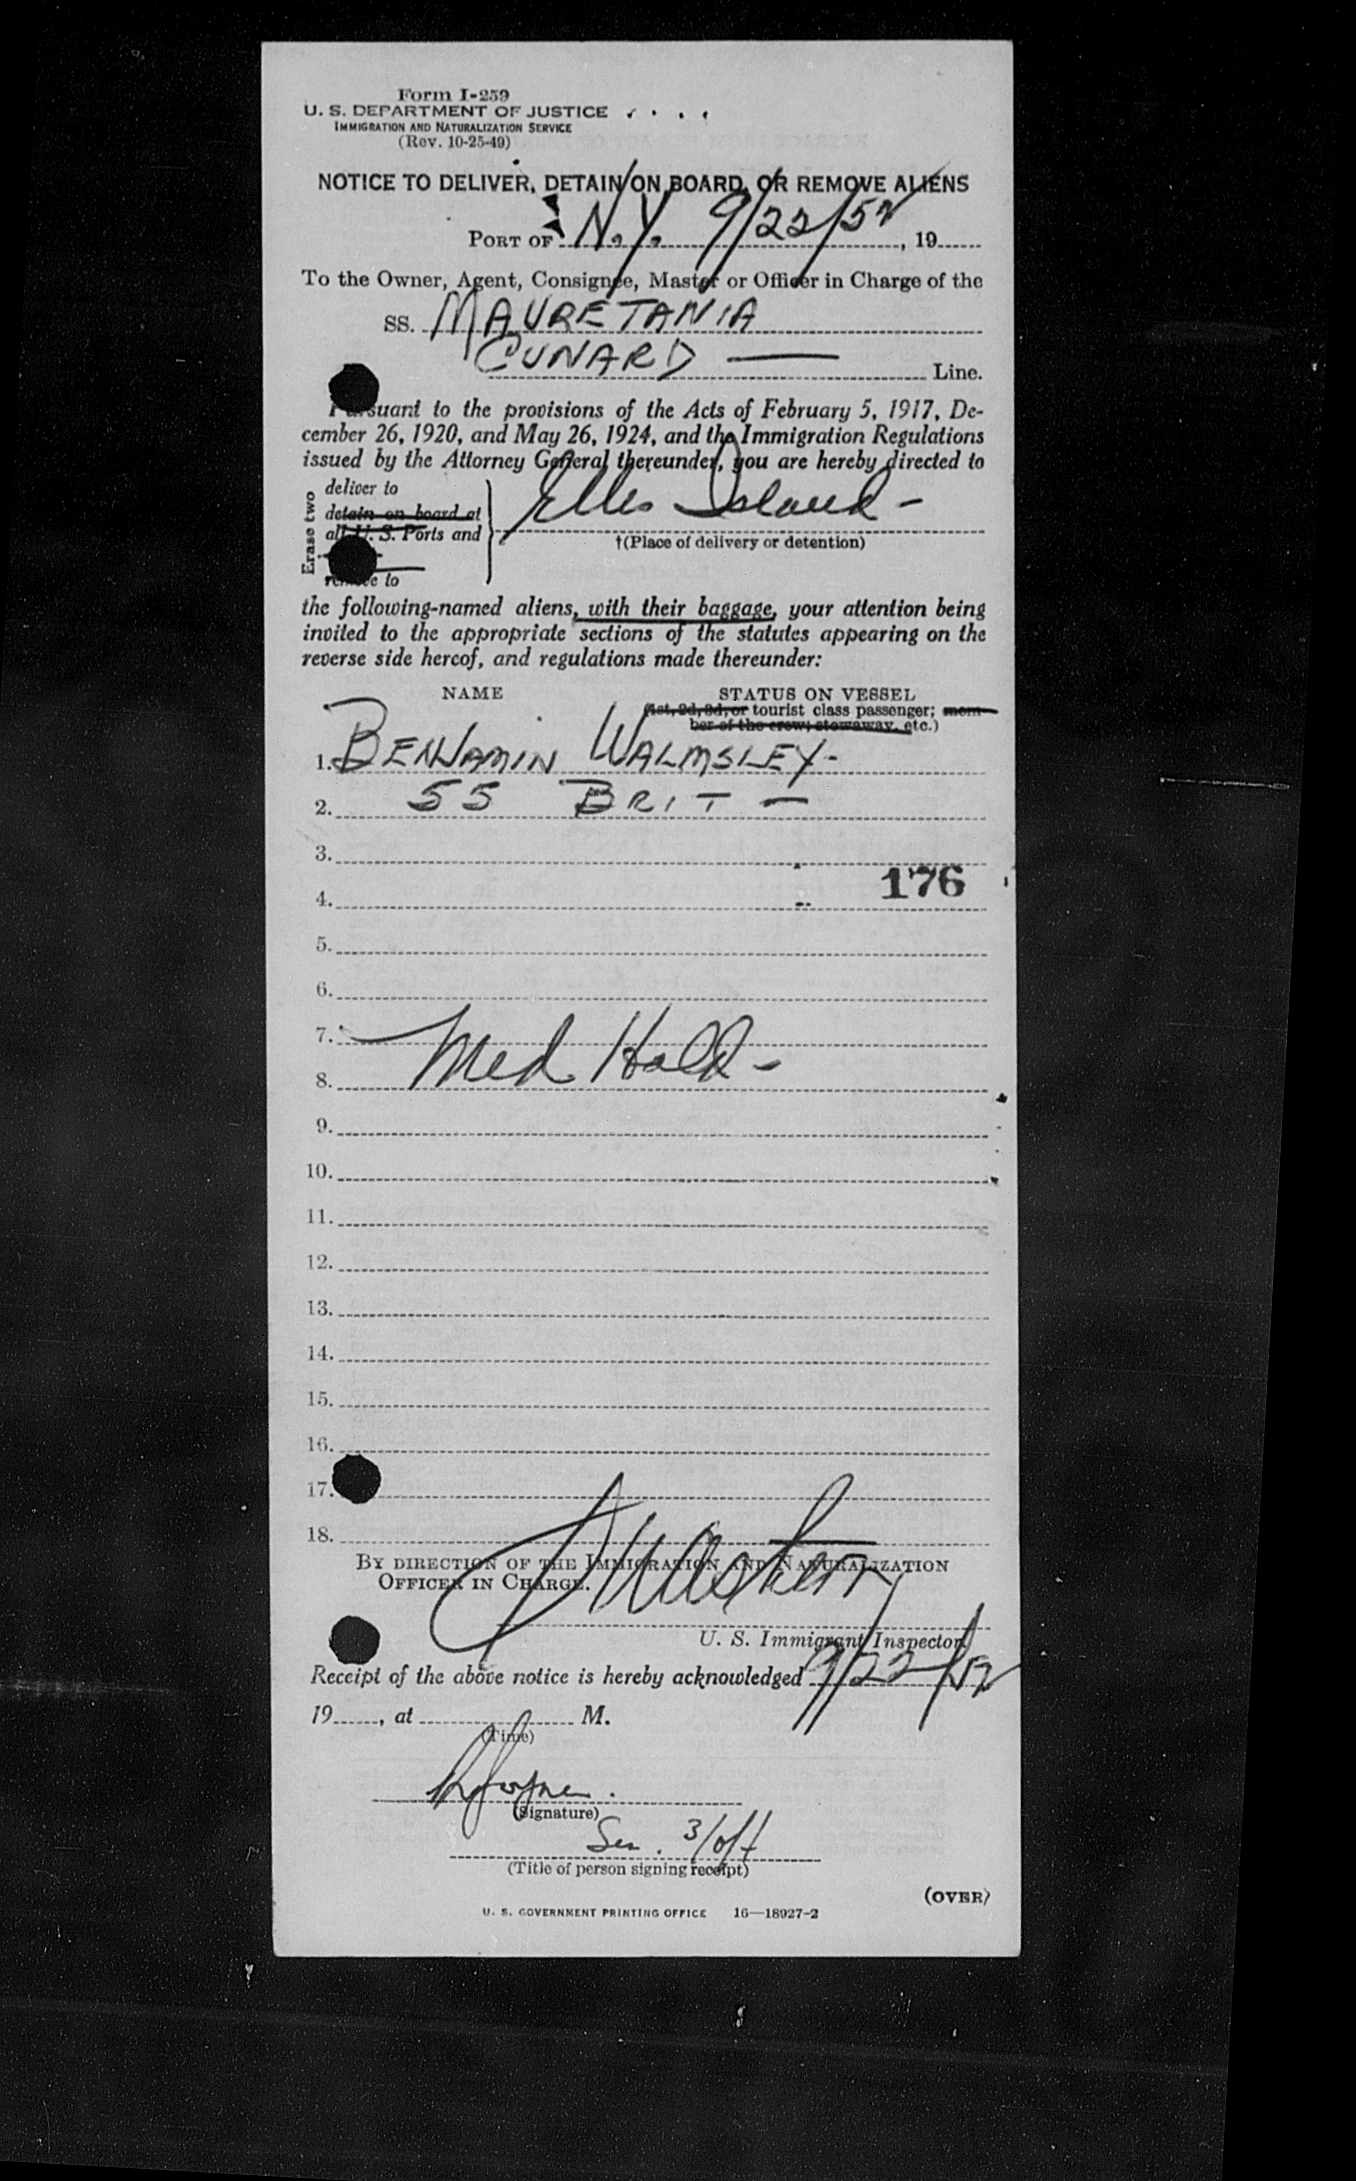 Form I-259
U. S. DEPARTMENT OF JUSTICE
IMMIGRATION AND NATURALIZATION SERVICE
(Rev. 10-25-49)
NOTICE TO DELIVER, DETAIN ON BOARD, OR REMOVE ALIENS
PORT OF N.Y. 9/22/52, 19
To the Owner, Agent, Consignee, Master or Officer in Charge of the
SS. MAURETANIA
CUNARD — Line.
Pursuant to the provisions of the Acts of February 5, 1917, De-
cember 26, 1920, and May 26, 1924, and the Immigration Regulations
issued by the Attorney General thereunder, you are hereby directed to
Erase two
deliver to
detain on board at
all U. S. Ports and
remove to
Ellis Island -
†(Place of delivery or detention)
the following-named aliens, with their baggage, your attention being
invited to the appropriate sections of the statutes appearing on the
reverse side hereof, and regulations made thereunder:
NAME STATUS ON VESSEL
(1st, 2d, 3d, or tourist class passenger; mem-
ber of the crew; stowaway, etc.)
1. BENJAMIN WALMSLEY -
2. 55 BRIT -
3.
176
4.
5.
6.
7.
Med Hold -
8.
9.
10.
11.
12.
13.
14.
15.
16.
17.
18.
BY DIRECTION OF THE IMMIGRATION AND NATURALIZATION
OFFICER IN CHARGE.
U. S. Immigrant Inspector
Receipt of the above notice is hereby acknowledged 9/22/52
19, at M.
(Time)
(Signature)
Sen. 3/off
(Title of person signing receipt)
(OVER)
U. S. GOVERNMENT PRINTING OFFICE 16—18927-2